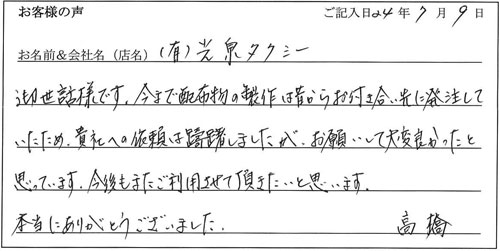 お客様の声 ご記入日24年7月9日
お名前&会社名（店名）(有)光泉タクシー
お世話様です。今まで配布物の製作は昔からお付き合い先に発注して
いたため、貴社への依頼は躊躇しましたが、お願いして大変良かったと
思っています。今後もまたご利用させて頂きたいと思います。
本当にありがとうございました。 高橋